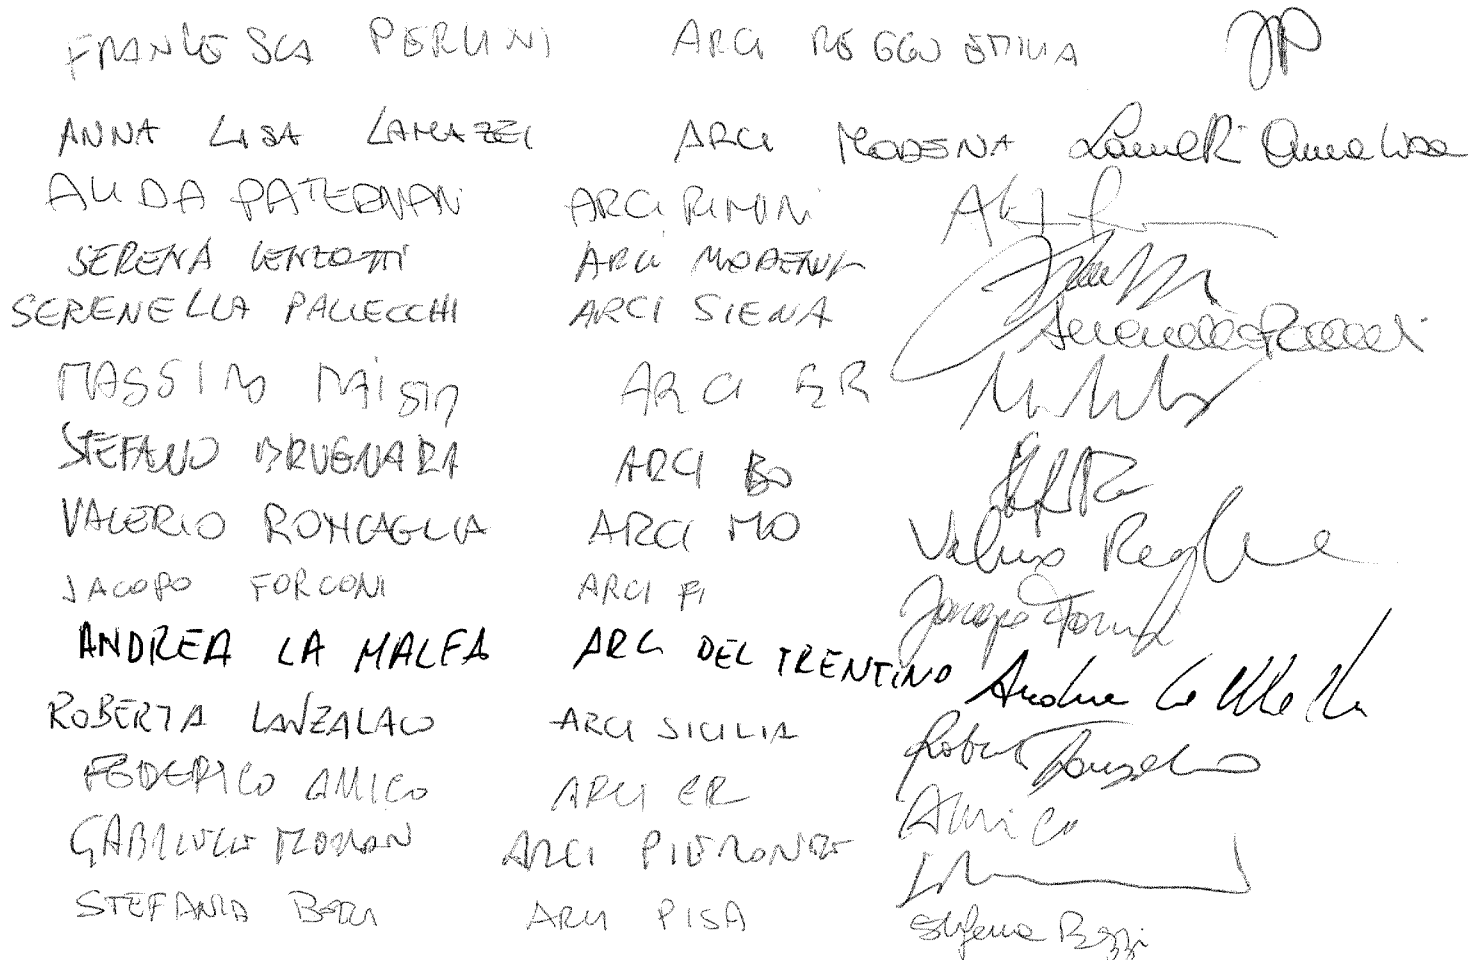 FRANCESCA PERLINI ARCI REGGIO EMILIA
ANNA LISA LAMAZZI ARCI MODENA Lamazzi Anna Lisa
ALIDA PATERNIANI ARCI RIMINI
SERENA LENZOTTI ARCI MODENA
SERENELLA PALLECCHI ARCI SIENA Serenella Pallecchi
MASSIMO MAISTO ARCI ER
STEFANO BRUGNARA ARCI BO
VALERIO RONCAGLIA ARCI MO
JACOPO FORCONI ARCI FI Jacopo Forconi
ANDREA LA MALFA ARCI DEL TRENTINO Andrea La Malfa
ROBERTA LANZALACO ARCI SICILIA
FEDERICO AMICO ARCI ER Amico
GABRIELE MORONI ARCI PIEMONTE
STEFANIA ARCI PISA Stefania